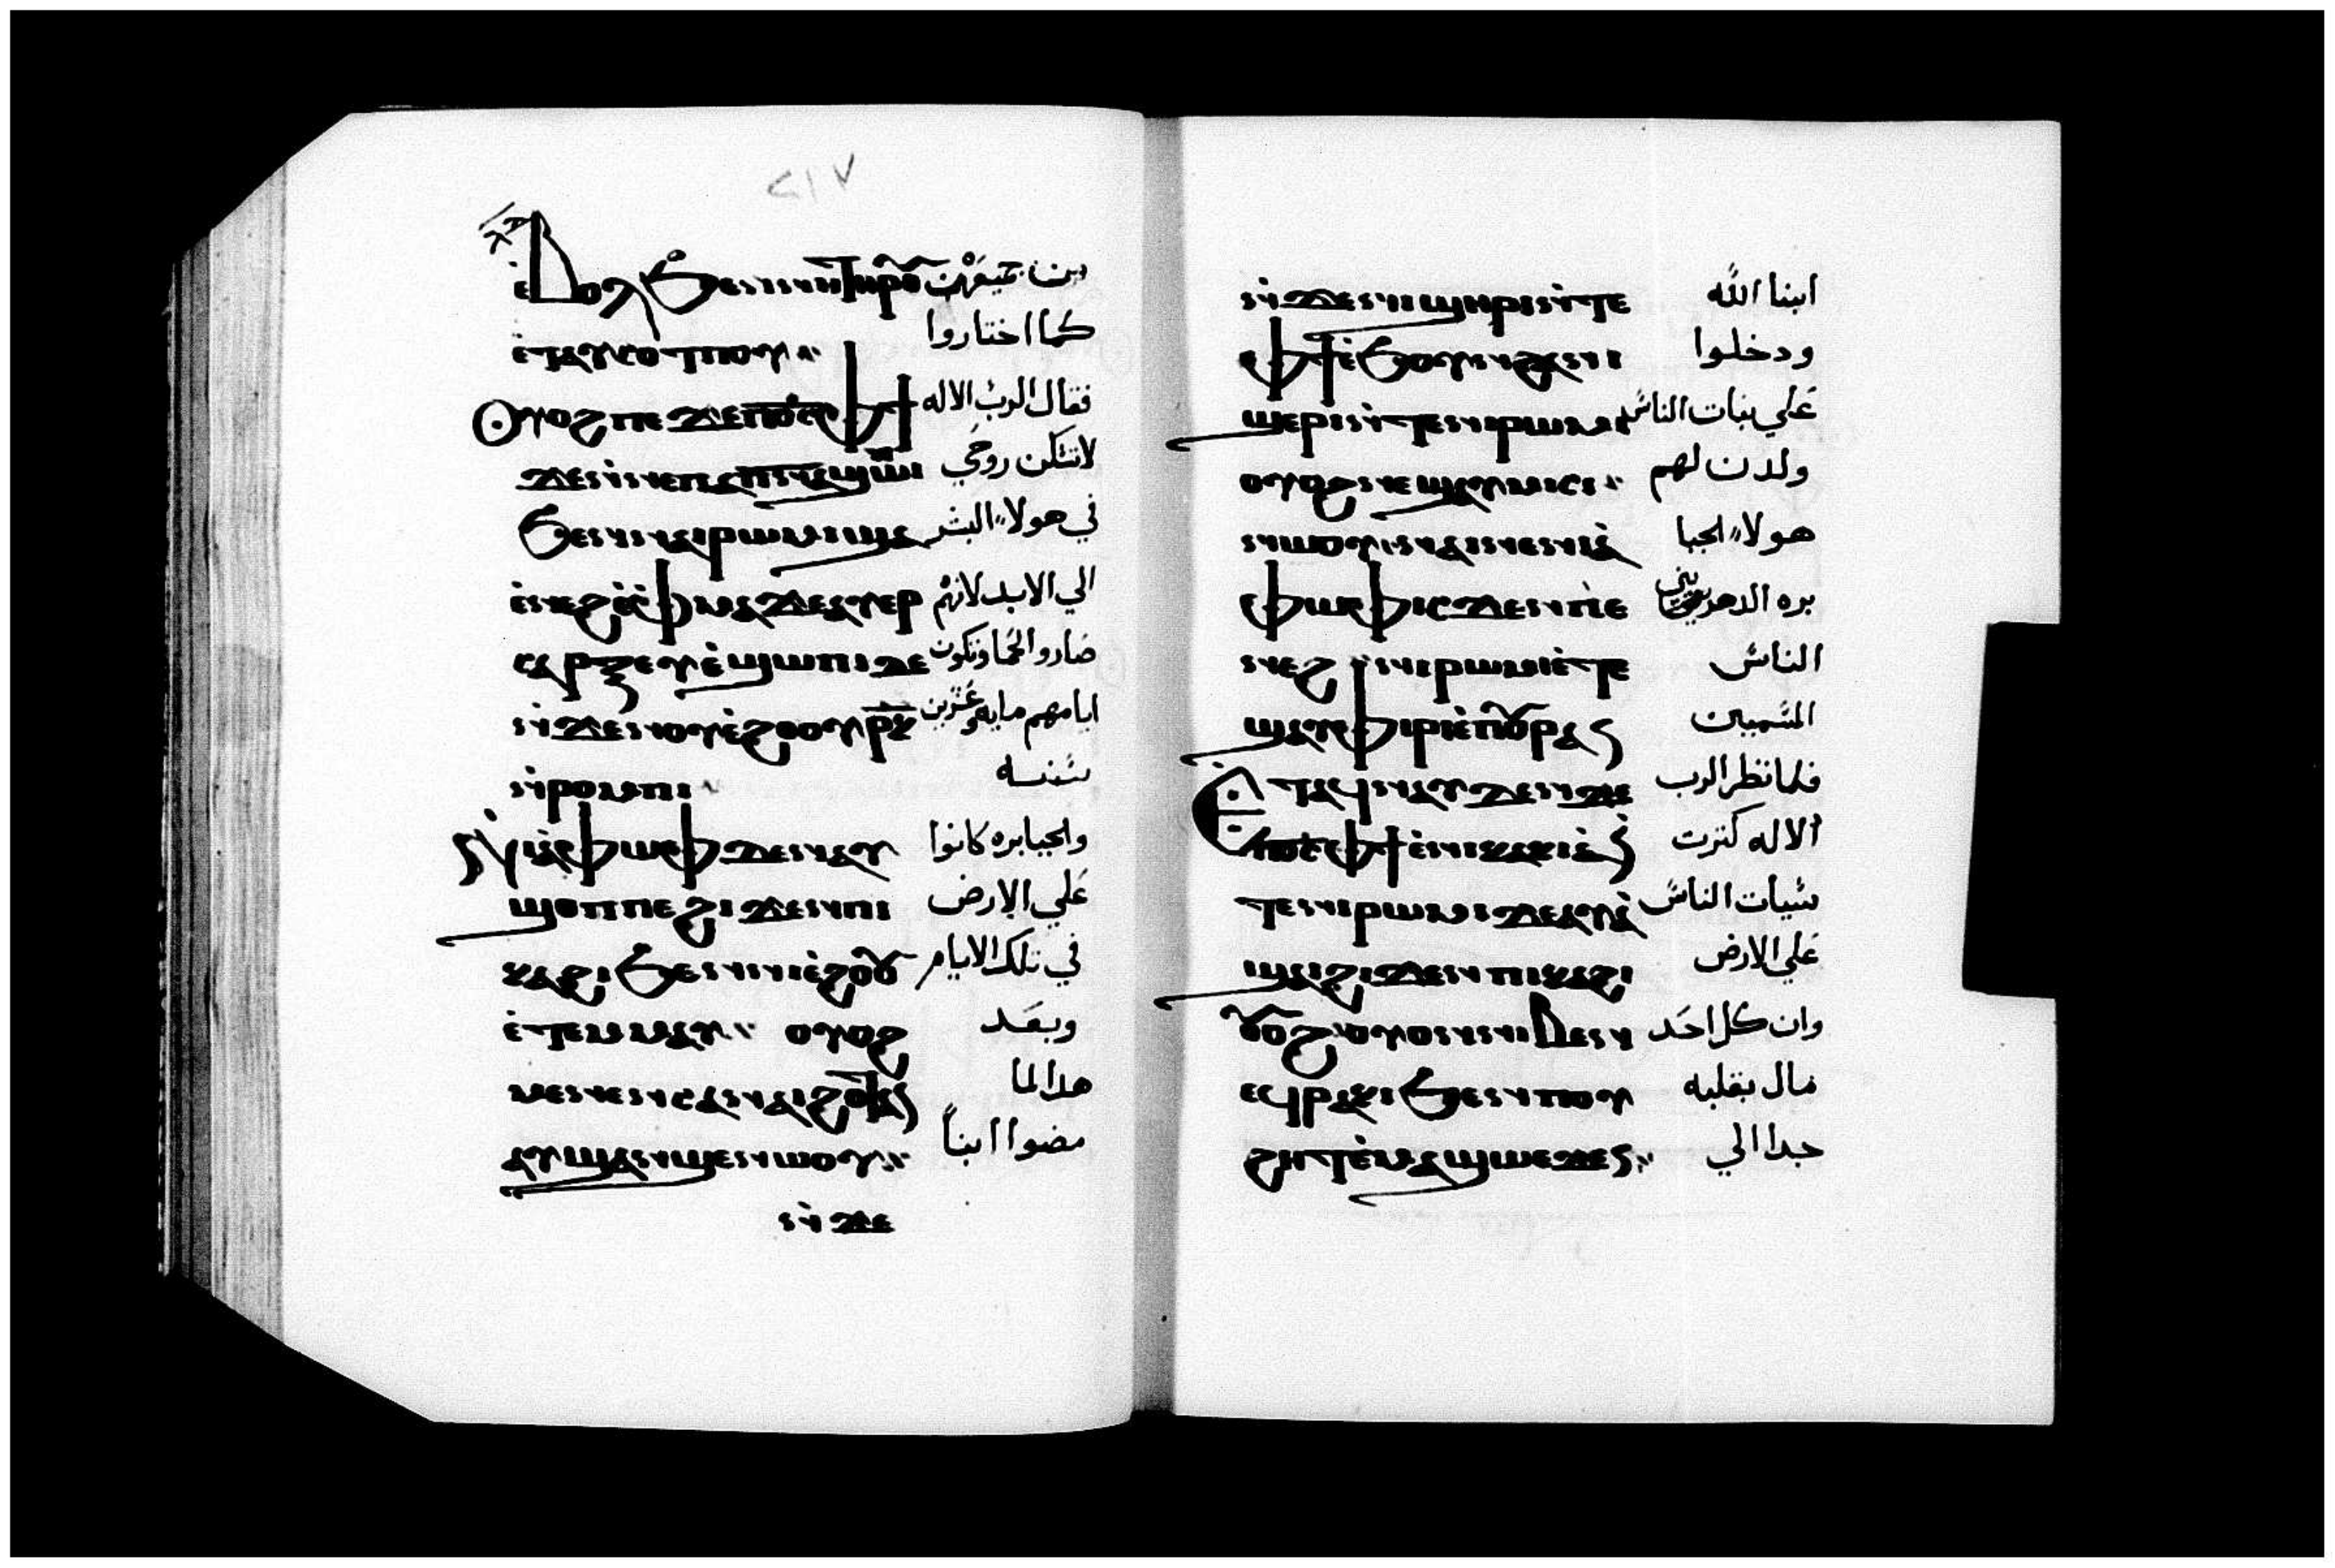 ٢١٧
ⲉ̀ⲃⲟⲗ ϧⲉⲛ ⲛⲏ ⲧⲏⲣⲟⲩ من جميعهن
ⲉ̀ⲧⲁⲩⲥⲟⲧⲡⲟⲩ كما اختاروا
ⲟⲩⲟϩ ⲡⲉϫⲉ ⲡⲟ̅ⲥ̅ ⲫϯ فقال الرب الاله
ϫⲉ ⲛ̀ⲛⲉ ⲡⲁⲡ̅ⲛ̅ⲁ̅ ϣⲱⲡⲓ لا تسكن روحي
ϧⲉⲛ ⲛⲁⲓⲣⲱⲙⲓ ϣⲁ في هولاء البشر
ⲉ̀ⲛⲉϩ ϫⲉ ⲁⲩⲉⲣ الي الابد لانهم
ⲥⲁⲣⲝ ⲉⲩⲉ̀ϣⲱⲡⲓ ⲇⲉ صاروا لحما وتكون
ⲛ̀ϫⲉ ⲛⲟⲩⲉ̀ϩⲟⲟⲩ ⲣ̅ⲕ̅ ايامهم مايه وعشرين
ⲛ̀ⲣⲟⲙⲡⲓ سنه
ⲛⲓⲁ̀ⲫⲱⲫ ⲇⲉ ⲛⲁⲩ والجبابره كانوا
ϣⲟⲡ ⲡⲉ ϩⲓϫⲉⲛ ⲡⲓ علي الارض
ⲕⲁϩⲓ ϧⲉⲛ ⲛⲓⲉ̀ϩⲟⲟⲩ في تلك الايام
ⲉ̀ⲧⲉⲙⲙⲁⲩ ⲟⲩⲟϩ وبعد
ⲙⲉⲛⲉⲛⲥⲁ ⲛⲁⲓ ϩⲟⲧⲁⲛ هدا لما
ⲁⲩϣⲁⲛϣⲉⲛⲱⲟⲩ مضوا ابنا
ⲛ̀ϫⲉ
ⲛ̀ϫⲉ ⲛⲓϣⲏⲣⲓ ⲛ̀ⲧⲉ ابنا الله
ⲫϯ ⲉ̀ϧⲟⲩⲛ ϩⲁ ⲛⲓ ودخلوا
ϣⲉⲣⲓ ⲛ̀ⲧⲉ ⲛⲓⲣⲱⲙⲓ علي بنات الناس
ⲟⲩⲟϩ ⲛⲉϣⲁⲩⲙⲓⲥⲓ ولدن لهم
ⲛⲱⲟⲩ ⲛⲁⲓ ⲛⲉ ⲛⲓⲁ̀ هولاء الجبا
ⲫⲱⲫ ⲓⲥϫⲉⲛ ⲡ̀ⲉ بره الدهريين
ⲛⲉϩ ⲛⲓⲣⲱⲙⲓ ⲉ̀ⲧⲉ الناس
ϣⲁⲩϥⲓⲣⲓ ⲉ̀ⲡⲟⲩⲣⲁⲛ المسميين
ⲉ̀ⲧⲁϥⲛⲁⲩ ⲇⲉ ⲛ̀ϫⲉ فلما نظر الرب
ⲡⲟ̅ⲥ̅ ⲫϯ ⲉ̀ⲛⲓⲕⲁⲕⲓⲁ̀ ⲛ̀ الاله كترت
ⲧⲉ ⲛⲓⲣⲱⲙⲓ ϫⲉ ⲁⲩⲁ̀ سيات الناس
ϣⲁⲓ ϩⲓϫⲉⲛ ⲡⲓⲕⲁϩⲓ علي الارض
ⲟⲩⲟϩ ⲟⲩⲟⲛ ⲛⲓⲃⲉⲛ وان كل احد
ⲉϥⲣⲁⲕⲓ ϧⲉⲛ ⲡⲟⲩ مال بقلبه
ϩⲏⲧ ⲉ̀ⲙⲁϣⲱ ⲉϫⲉⲛ جدا الي